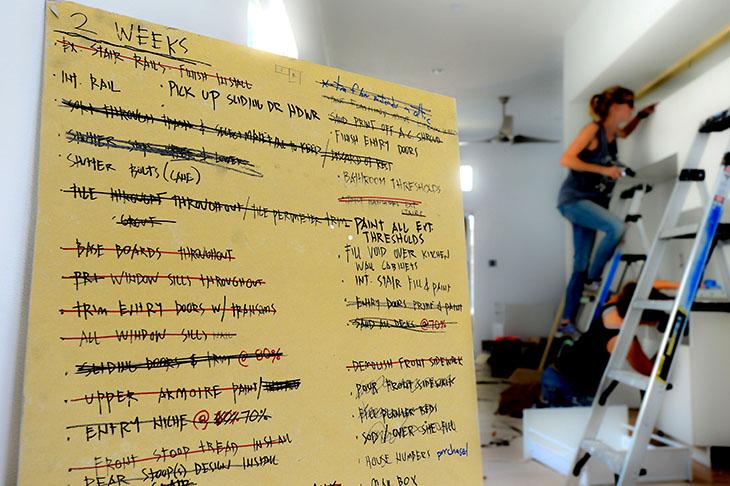 2 WEEKS
EX. STAIR RAILS: FINISH INSTALL
INT. RAIL
• PICK UP SLIDING DR HDWR
SORT THROUGH
SHUTTER LOWER
SHUTTER BOLTS (CANE)
TILE THROUGHOUT / TILE PERIMETER TRIM
GROUT
• BASE BOARDS THROUGHOUT
• PRT WINDOW SILLS THROUGHOUT
• TRIM ENTRY DOORS W/ TRANSOMS
• ALL WINDOW SILLS
• SLIDING DOORS & TRIM @ 80%
• UPPER ARMOIRE PAINT/
• ENTRY NICHE @ 70%
• FRONT STOOP TREAD INSTALL
REAR STOOP(S) DESIGN INSTALL
SAND PRINT OFF A.C. SHROUD
FINISH ENTRY DOORS
• BATHROOM THRESHOLDS
PAINT ALL EXT.
THRESHOLDS
FILL VOID OVER KITCHEN
WALL CABINETS
• INT. STAIR FILL & PAINT
• ENTRY DOORS PRIME & PAINT
• SAND ALL @ 70%
• DEMOLISH FRONT SIDEWALK
• POUR FRONT SIDEWALK
• FILL PLANTER BEDS
• SOD / OVER SHELL FILL
• HOUSE NUMBERS purchase!
• MAIL BOX